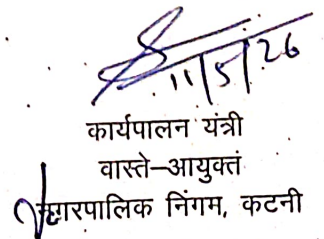 11/5/26
कार्यपालन यंत्री
वास्ते–आयुक्त
नगरपालिक निंगम, कटनी